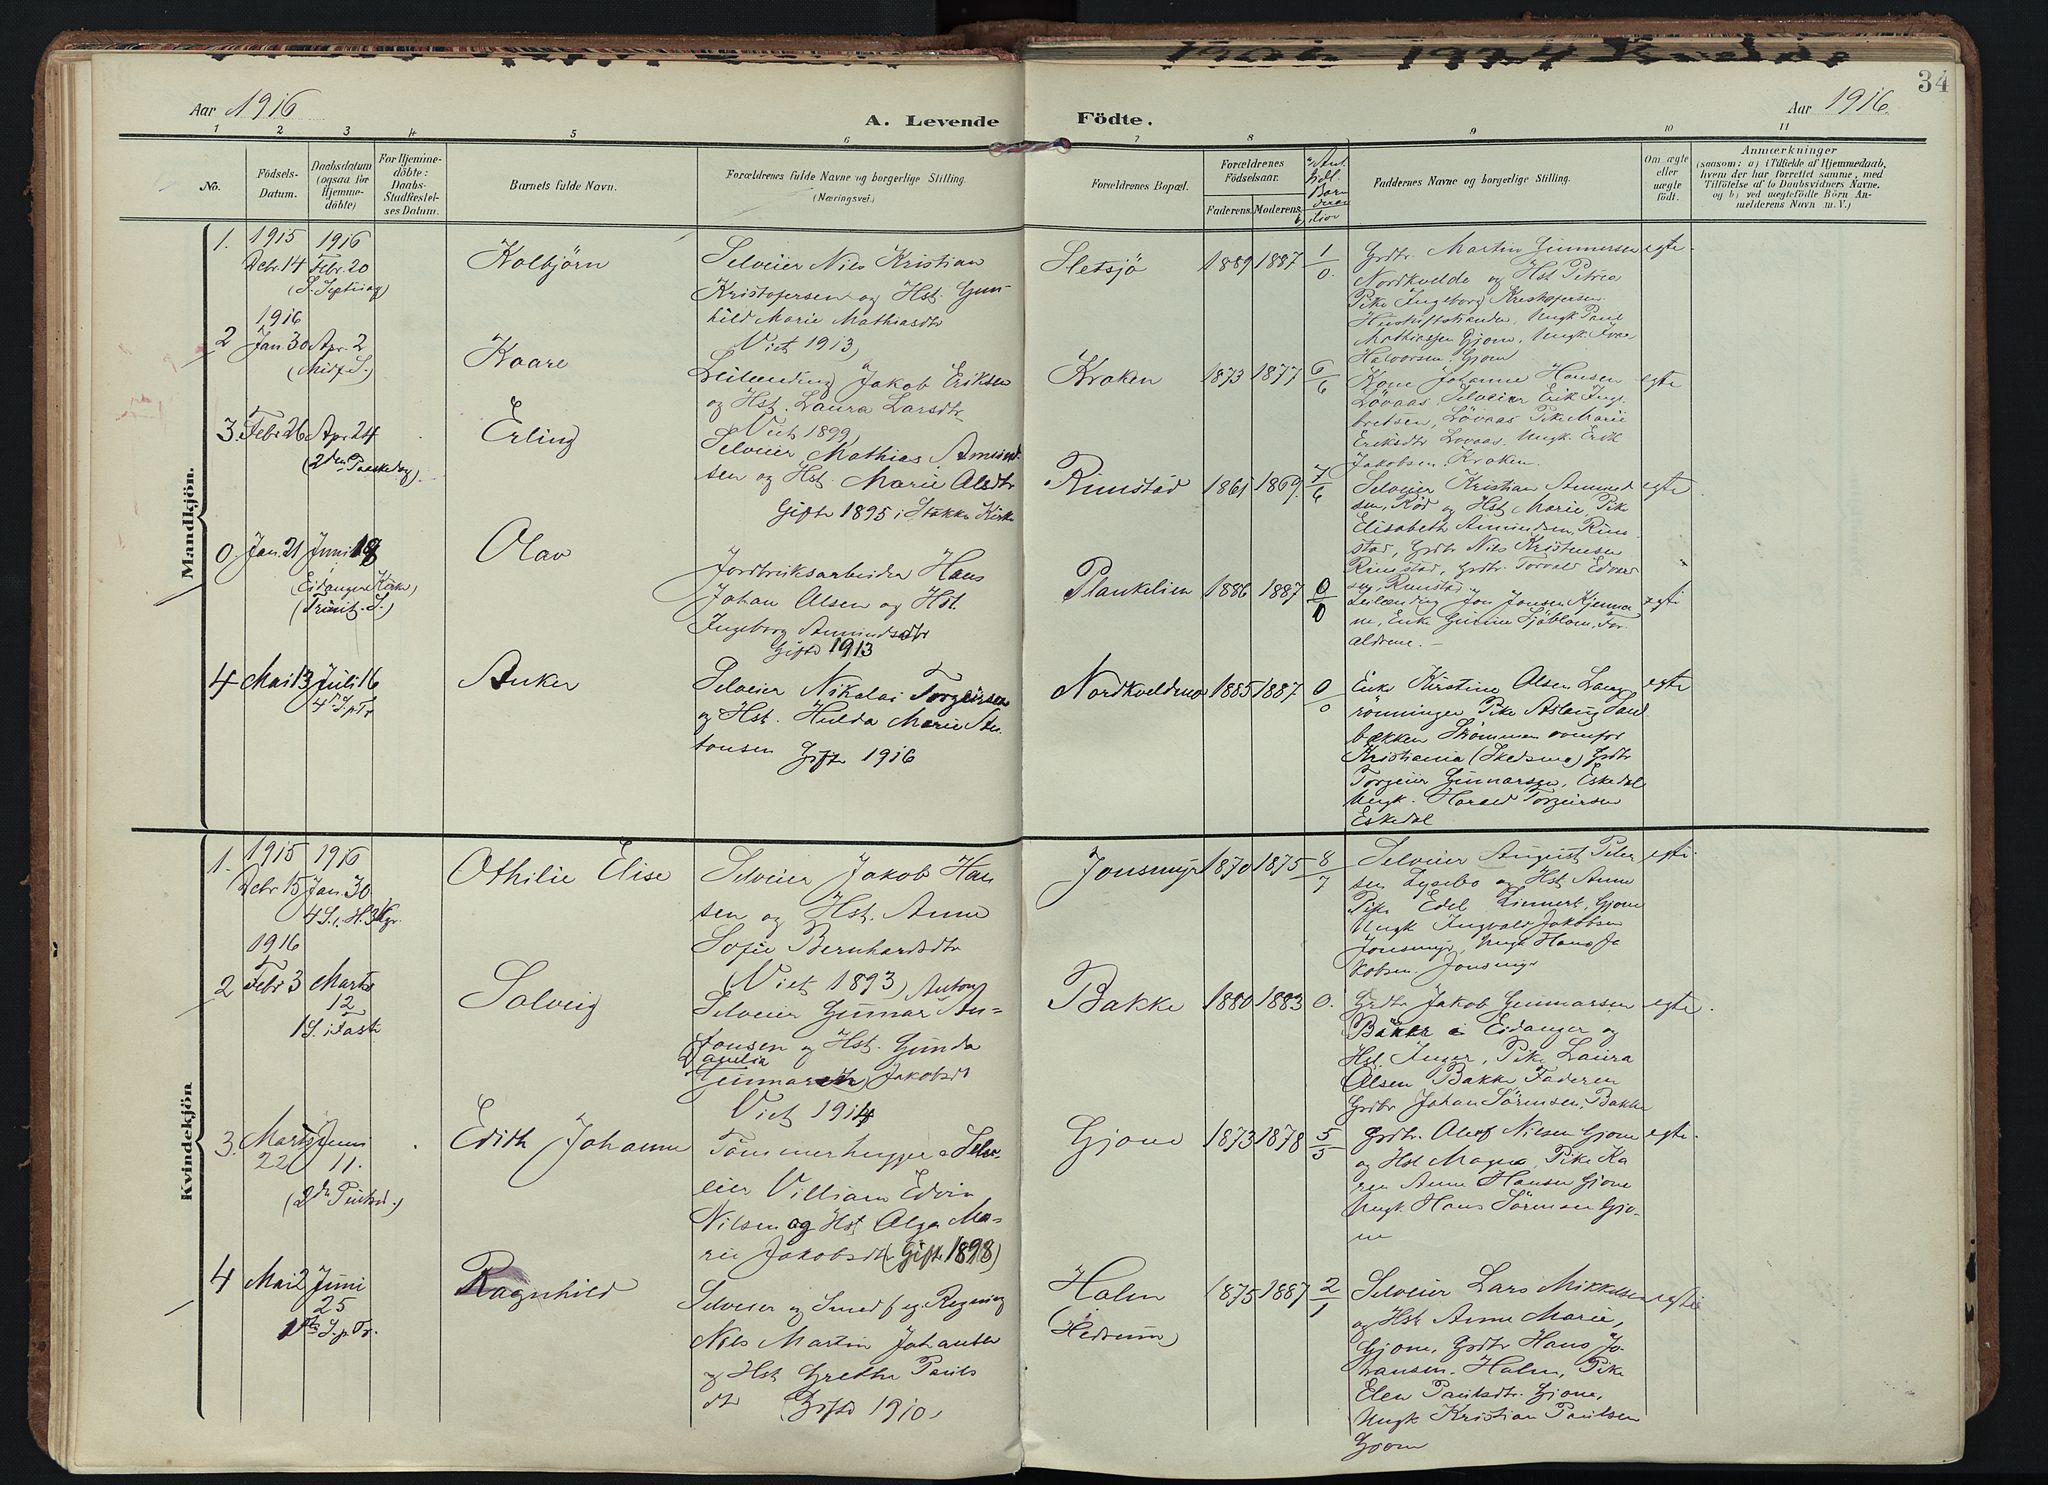 1906 - 1924 Kvelde
34
Aar 1916
A. Levende Födte.
Aar 1916.
1 2 3 4 5 6 7 8 9 10 11
No.
Födsels-
Datum.
Daabsdatum
(ogsaa for
Hjemme-
döbte)
For Hjemme-
döbte:
Daabs-
Stadfæstel-
ses Datum.
Barnets fulde Navn.
Forældrenes fulde Navne og borgerlige Stilling.
(Næringsvei.)
Forældrenes Bopæl.
Forældrenes
Födselsaar.
Faderens. Moderens.
Faddernes Navne og borgerlige Stilling.
Om ægte
eller
uægte
födt.
Anmærkninger
(saasom: a) i Tilfælde af Hjemmedaab,
hvem der har forrettet samme, med
Tilföielse af to Daabsvidners Navne.
og b) ved uegtefödte Börn An-
melderens Navn m. V.)
Mandkjön.
1.
1915
Debr. 14
1916
Febr. 20
(S. Septuag)
Kolbjörn
Selveier Nils Kristian
Kristofersen og Hst. Gun-
hild Marie Mathiasdtr
Viet 1913)
Sletsjö
1889 1887 1/0
Grdbr. Martin Gunnersen
Nordkvelde og Hst Petrea
Pike Ingeborg Kristofersen
Ungk Paul
Mathiassen Gjone, Ungk. Ivar
Halvorsen. Gjone
egte
2
1916
Jan. 30
Apr. 2
(Midf. S.)
Kaare
Leilænding Jakob Eriksen
og Hst. Laura Larsdtr
Viet 1899)
Kraken
1873 1877 6/6
Kone Johanne Hansen
Lövaas, Selveier Erik Ing-
bretsen, Lövaas Pike Marie
Eriksdtr Lövaas, Ungk. Erik
Jakobsen, Kraken.
egte
3.
Febr 26
Apr. 24
(2den Paaskedag)
Erling
Selveier Mathias Amund-
sen og Hst. Marie Olsdtr
Gifte 1895 i Stokke Kirke
Rimstad
1861 1869. 7/6
Selveier Kristian Amund
sen, Röd og Hst Marie, Pike
Elisabeth Amundsen, Rim-
stad, Grdbr Nils Kristensen
Rimstad, Grdbr. Torvald Edvard
sen, Rimstad
egte
0.
Jan. 21
Juni 18
(Eidanger Kirke)
(Trinit. S.)
Olav
Jordbruksarbeider Hans
Johan Olsen og Hst.
Ingeborg Amundsdtr
Gifte 1913
Plankelien
1886 1887 0/0
Leilænding Jon Jonsen Kjenna
ne, Enke Gurine Sjöblom, For
ældrene. -
egte
4
Mai 13
Juli 16
4 S. p. Tr
Anker
Selveier Nikolai Torgeirsen
og Hst. Hulda Marie An-
tonsen Gifte 1916
Nordkveldemo
1885 1887 0/0
Enke Kirstine Olsen Lang
rönningen Pike Aslaug Sand
bækken Strömmen ovenfor
Kristiania (Skedsmo) Grdbr
Torgeir Gunnarsen, Eskedal
Ungk. Harald Torgeirsen
Eskedal
egte
Kvindekjön
1.
1915
Debr. 15
1916
Jan. 30
4 S. i H. 3 Kgr.
Othilie Elise
Selveier Jakob Han
sen og Hst. Anne
Sofie Bernhardsdtr
(Viet 1893)
Jonsmyr
1870 1875 8/7
Selveier August Peter
sen Lysebo og Hst Anne
Pike Edel Linnert, Gjone
Ungk Ingvald Jakobsen
Jonsmyr, Ungk Hans Ja
kobsen. Jonsmyr
egte
2
1916
Febr 3
Marts
12
1 S. i Faste
Solveig
Anton
Selveier Gunnar An-
tonsen og Hst. Gunda
Gunnarsdtr Jakobsdt
Viet 1914
Bakke
1880 1883 0.
Grdbr Jakob Gunnarsen
Bakke i Eidanger og
Hst. Inger, Pike Laura
Olsen Bakke Faderen
Grdbr Johan Sörensen, Bakke
egte.
3.
Marts
22
Juni
11.
(2den Pintsed.)
Edith Johanne
Tömmerhugger o Selv-
eier Villiam Edvin
Nilsen og Hst Olga Ma-
rie Jakobsdt (Gifte 1898)
Gjone
1873 1878 5/5
Grdbr. Oluf Nilsen Gjone
og Hst Magna, Pike Ka
ren Anne Hansen Gjone
Ungk Hans Sörensen Gjo-
ne
egte
4
Mai 2
Juni
25
1ste S. p. Tr.
Ragnhild
Selveier og Smed f eg. Regning
Nils Martin Johansen
og Hst Grethe Pauls
dt (Gifte 1910)
Holm
i
(Hedrum)
1875 1887 2/1
Selveier Lars Mikkelsen
og Hst Anne Marie,
Gjone, Grdbr Hans Jo-
hansen, Holm, Pike
Elen Paulsdtr. Gjone,
Ungk Kristian Paulsen
Gjone
egte